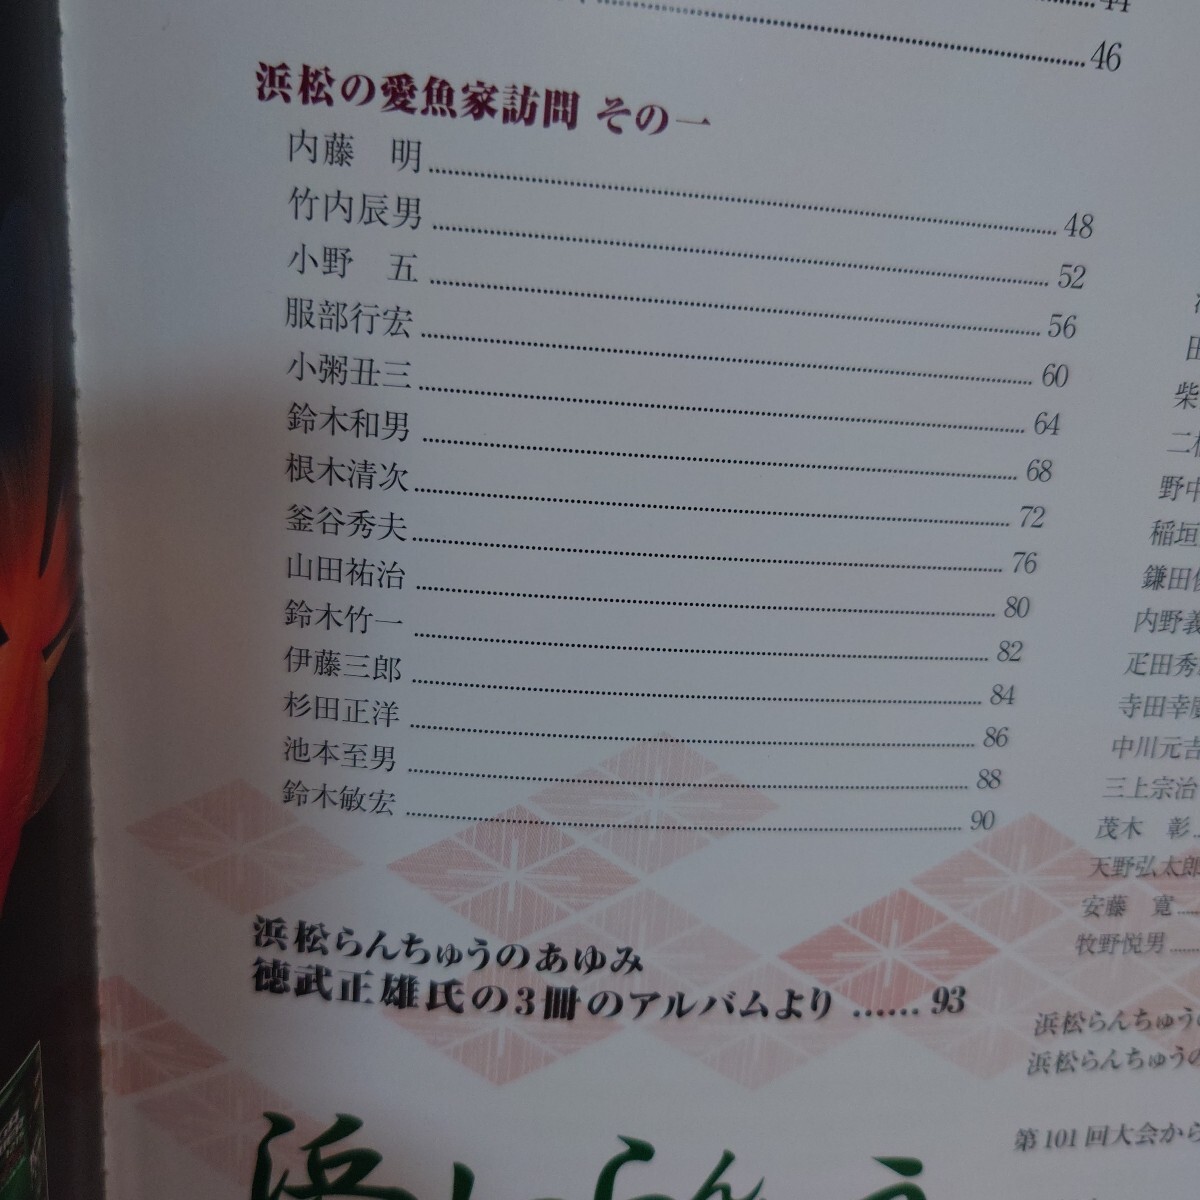 44
46
浜松の愛魚家訪問 その一
内藤　明 48
竹内辰男 52
小野　五 56
服部行宏 60
小粥丑三 64
鈴木和男 68
根木清次 72
釜谷秀夫 76
山田祐治 80
鈴木竹一 82
伊藤三郎 84
杉田正洋 86
池本至男 88
鈴木敏宏 90
浜松らんちゅうのあゆみ
徳武正雄氏の3冊のアルバムより …… 93
田
柴
二
野中
稲垣
鎌田
内野義
疋田秀
寺田幸
中川元吉
三上宗治
茂木　彰
天野弘太郎
安藤　寛
牧野悦男
浜松らんちゅうの
浜松らんちゅうの
第101回大会から